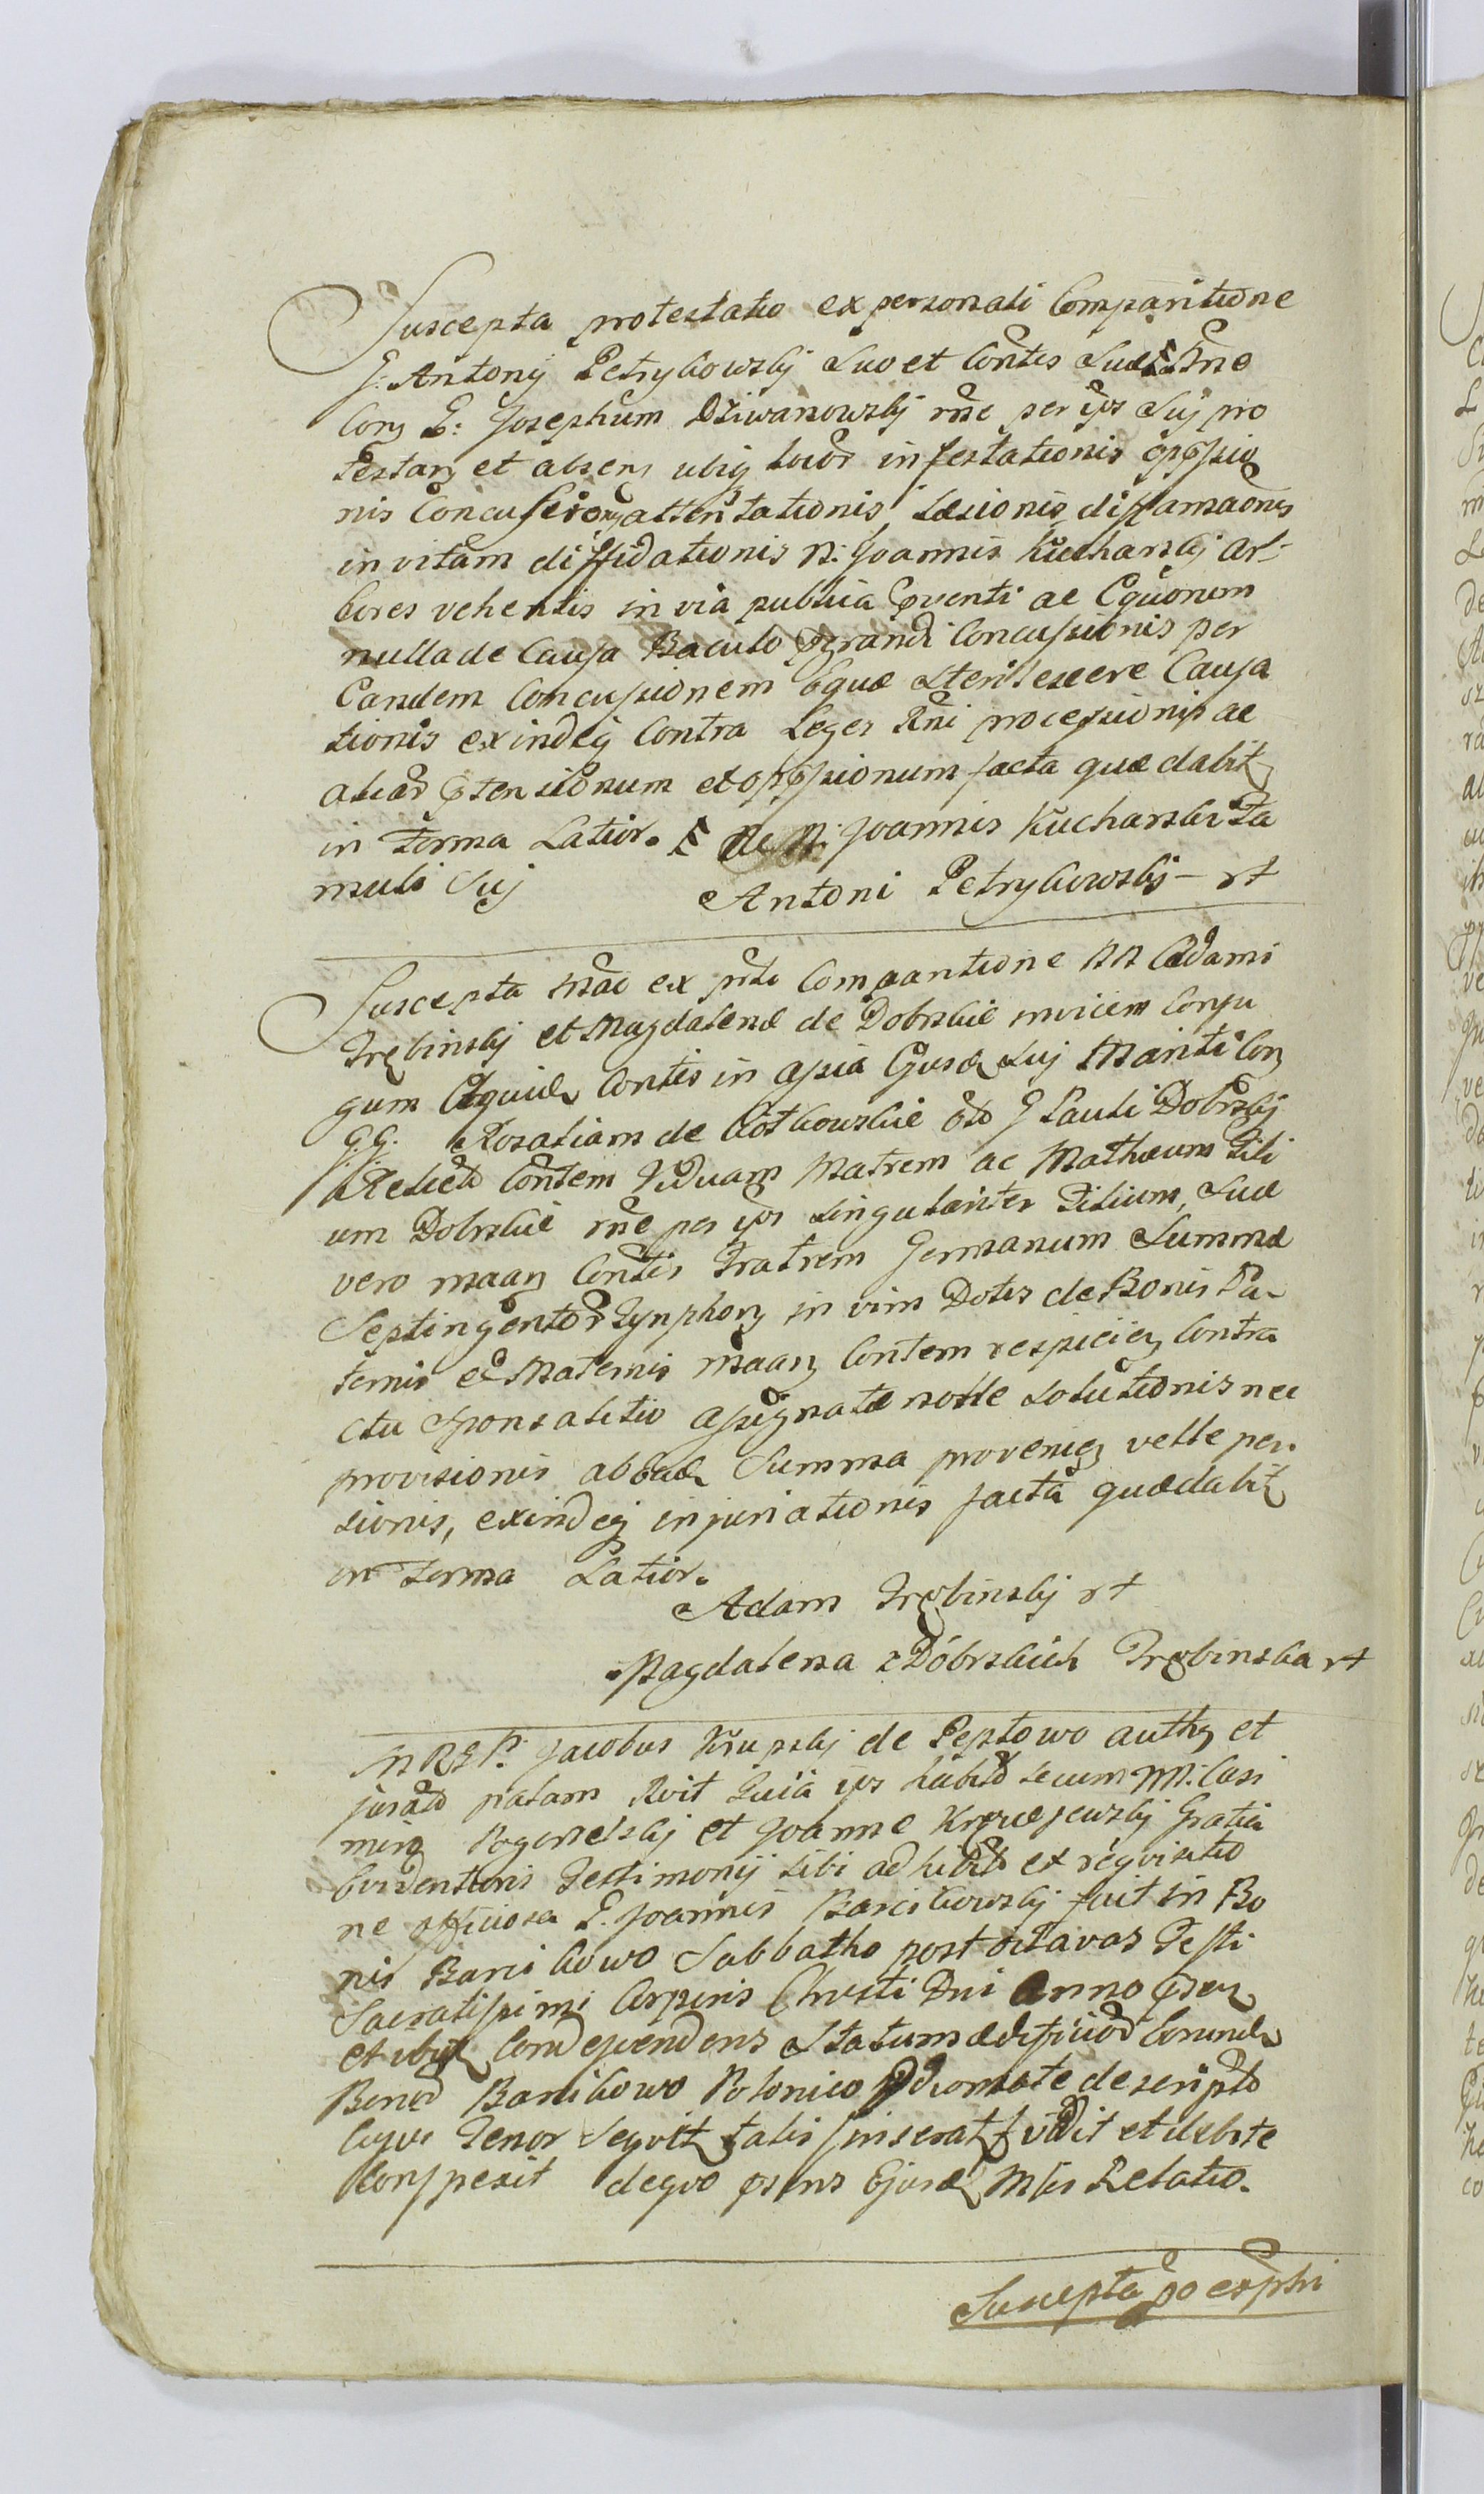 Suscepta protestatio ex personali Comparitione
G. Antonij Petrykowskj Suo et Contis Suæ Nne
Con G: Josephum Dziwanowskj rne per ips Sui pro
testan et absens ubiq locor infestationis oppssio
nis Concussionis attentationis, Læsionis diffamaonis
in vitam diffidationis N: Joannis Kucharskj Ar-
bores vehentis in via publica pventi ac Equorum
nulla de Causa Baculo pgrandi Concussionis per
Eandem Concussionem Equæ sterilescere Causa
tionis exindeq Contra Leges Rni processionis ac
aliar ptensionum et oppssionum facta quæ dabit
in Forma Latior. & N: Joannis Kucharski Fa
muli Suj
Antoni Petrykowskj - rt
Suscepta Mao ex prli Comparitione NN Adami
Trębinskj et Magdalenæ de Dobrskie invicem Conju
gum Contis in assia Ejusd Suj Mariti Con
G.G. Rosaliam de Kotkowskie olo G Pauli Dobrskj
Relicta Contem Viduam Matrem ac Mathæum Fili
um Dobrskie rne per ips singulariter Filium, Suæ
vero maan Contis Fratrem Germanum Summæ
Septingentor Tynphon in vim Dotis de Bonis Pa-
ternis et Maternis maan Contem respicien Contra
ctu Sponsalitio assignatæ nolle Solutionis nec
provisionis ab ead Summa provenien velle pen
sionis, exindeq injuriationis facta quæ dabit
in Forma Latior.
Adam Trębinskj rt
Magdalena z Dóbrskich Trębinska rt
MRGP. Jacobus Krupskj de Peptowo auth et
jurato palam Rvit Quia ips habito secum NN. Casi
miro Rogorzelskj et Joanne Krajewskj Gratia
Evidentioris Testimonij sibi adhibito ex requisitio
ne officiosa G. Joannis Barcikowskj fuit in Bo
nis Barcikowo Sabbatho post octavas Festi
Sacratissimi Corporis Christi Dni Anno psen
et ibid Condescendens Statum ædificior Eorund
Bonor Barcikowo Polonico Idiomate descripto
Cujus Tenor Sequit talis inserat vidit et debite
Conspexit de quo psens Ejusd Mlis Relatio.
Suscepta po cesphi